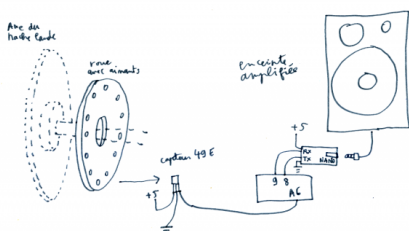 Axe du
roue
avec aimants
enceinte
amplifiée
capteur 49E
+5
+5
RX
TX
NANO
9 8
A6